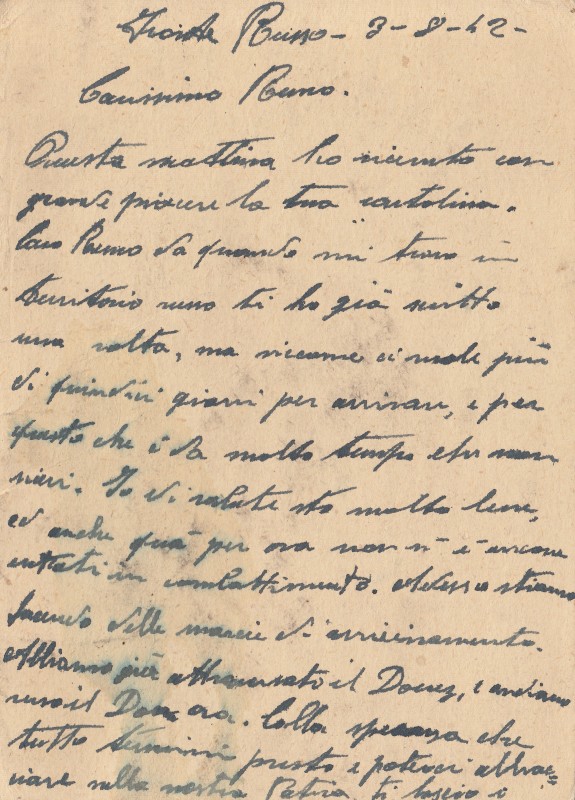 Fronte Russo - 3 - 8 - 42 -
Carissimo Remo.
Questa mattina ho ricevuto con
grande piacere la tua cartolina.
Caro Remo da quando mi trovo in
territorio russo ti ho già scritto
una volta, ma siccome ci vuole più
di quindici giorni per arrivare, è per
questo che è da molto tempo che non
ricevi. Io di salute sto molto bene,
ed anche quà per ora non si è ancora
entrati in combattimento. Adesso stiamo
facendo delle marcie di avvicinamento.
Abbiamo già attraversato il Donez, e andiamo
verso il Don ora. Colla speranza che
tutto termini presto e poterci abbrac=
ciare nella nostra Patria, ti lascio e